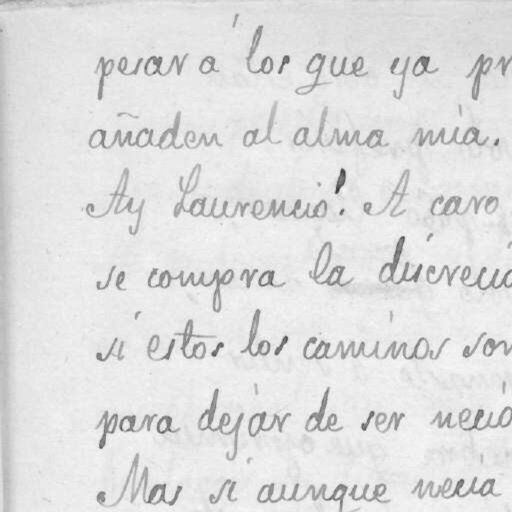 pesar á los que ya pr
añaden al alma mia.
Ay Laurencio! A caro
se compra la discreció
si estos los caminos son
para dejar de ser necio
Mas si aunque necia